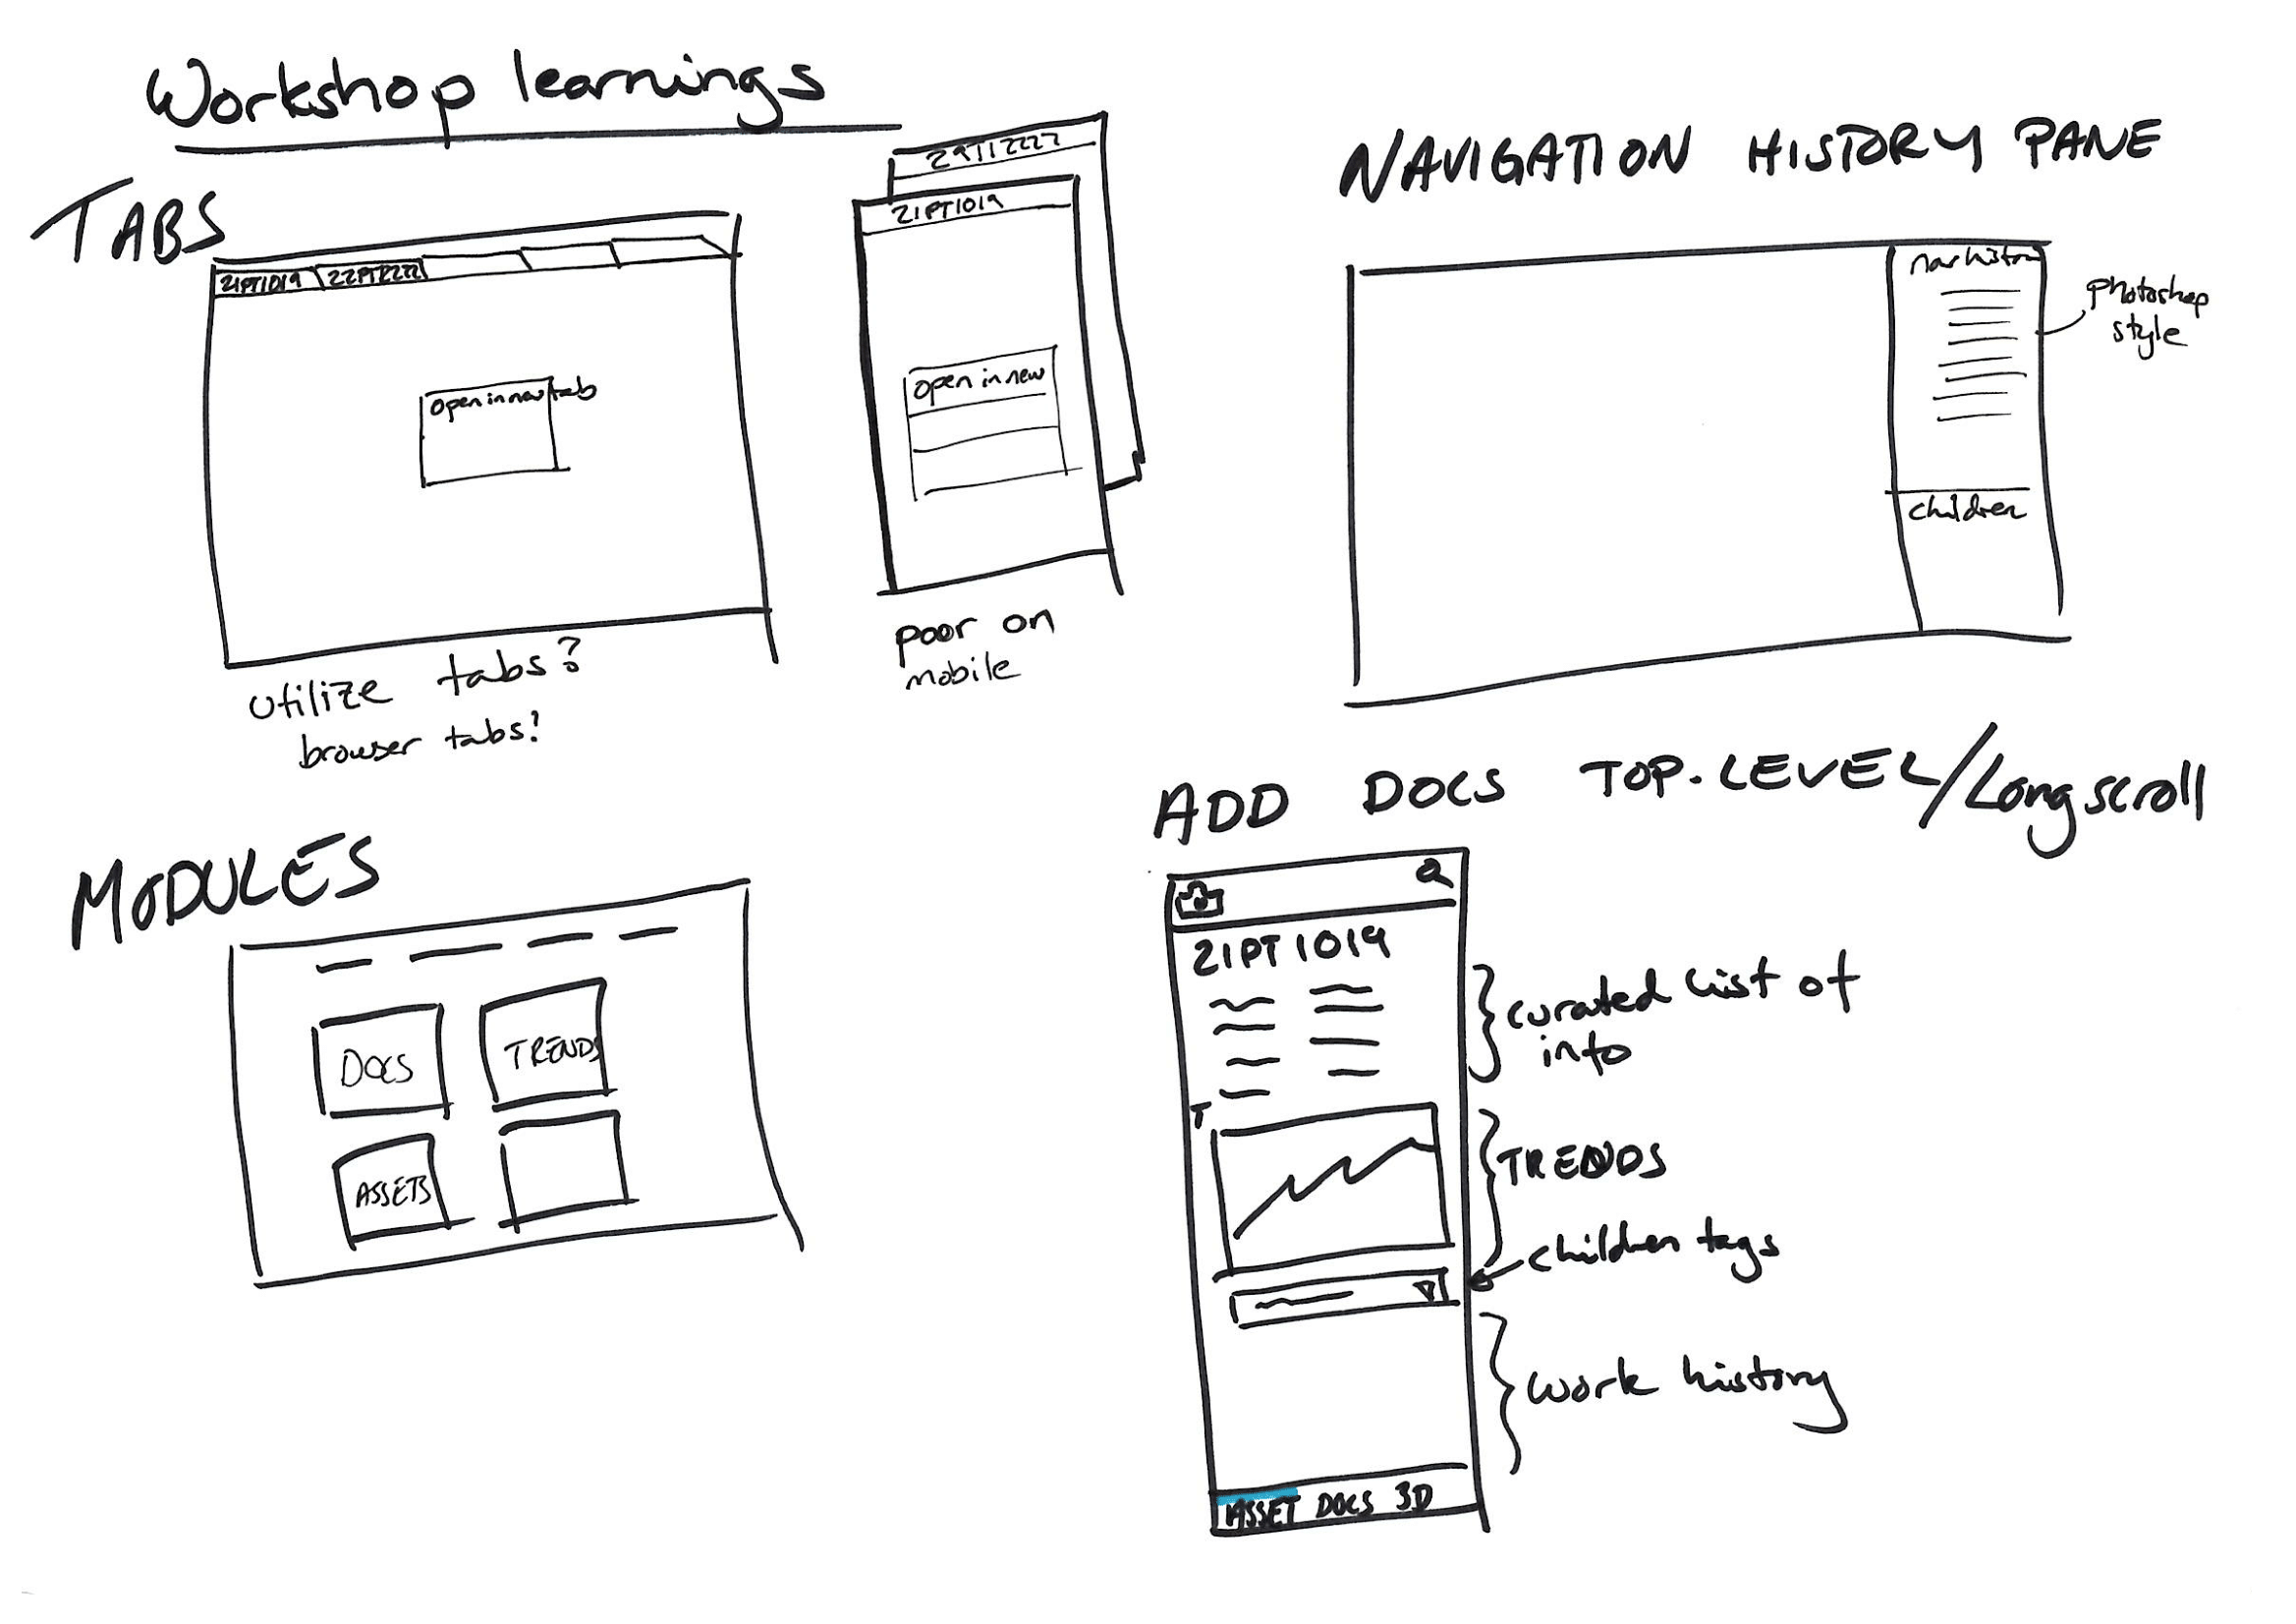 Workshop learnings
TABS
21PT1019 22PT2222
open in new tab
utilize tabs?
browser tabs?
29TT2222
21PT1019
open in new
poor on
mobile
NAVIGATION HISTORY PANE
nav histor
children
photoshop
style
MODULES
DOCS
TRENDS
ASSETS
ADD DOCS TOP-LEVEL/Long scroll
21PT1019
T
ASSET DOCS 3D
curated list of
info
TRENDS
children tags
work history